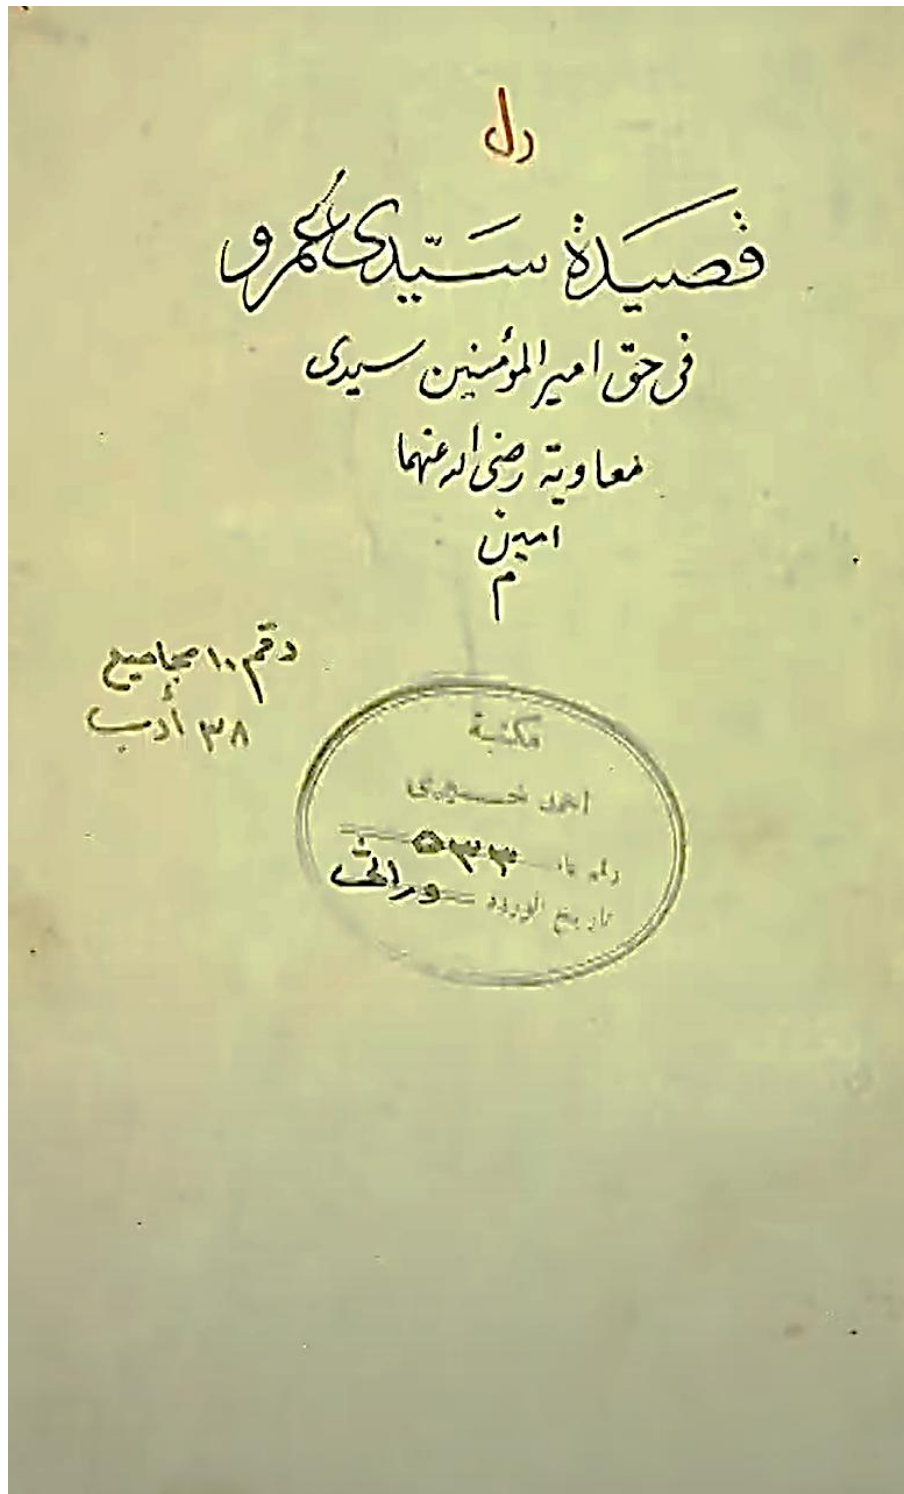 قصيدة سيّدى عُمرو
فى حق امير المؤمنين سيدى
معاوية رضى الله عنهما
امين
م
رقم ١٠ مجاميع
٣٨ أدب
مكتبة
احمد خيرى
٥٣٣
تاريخ الورود وراثى